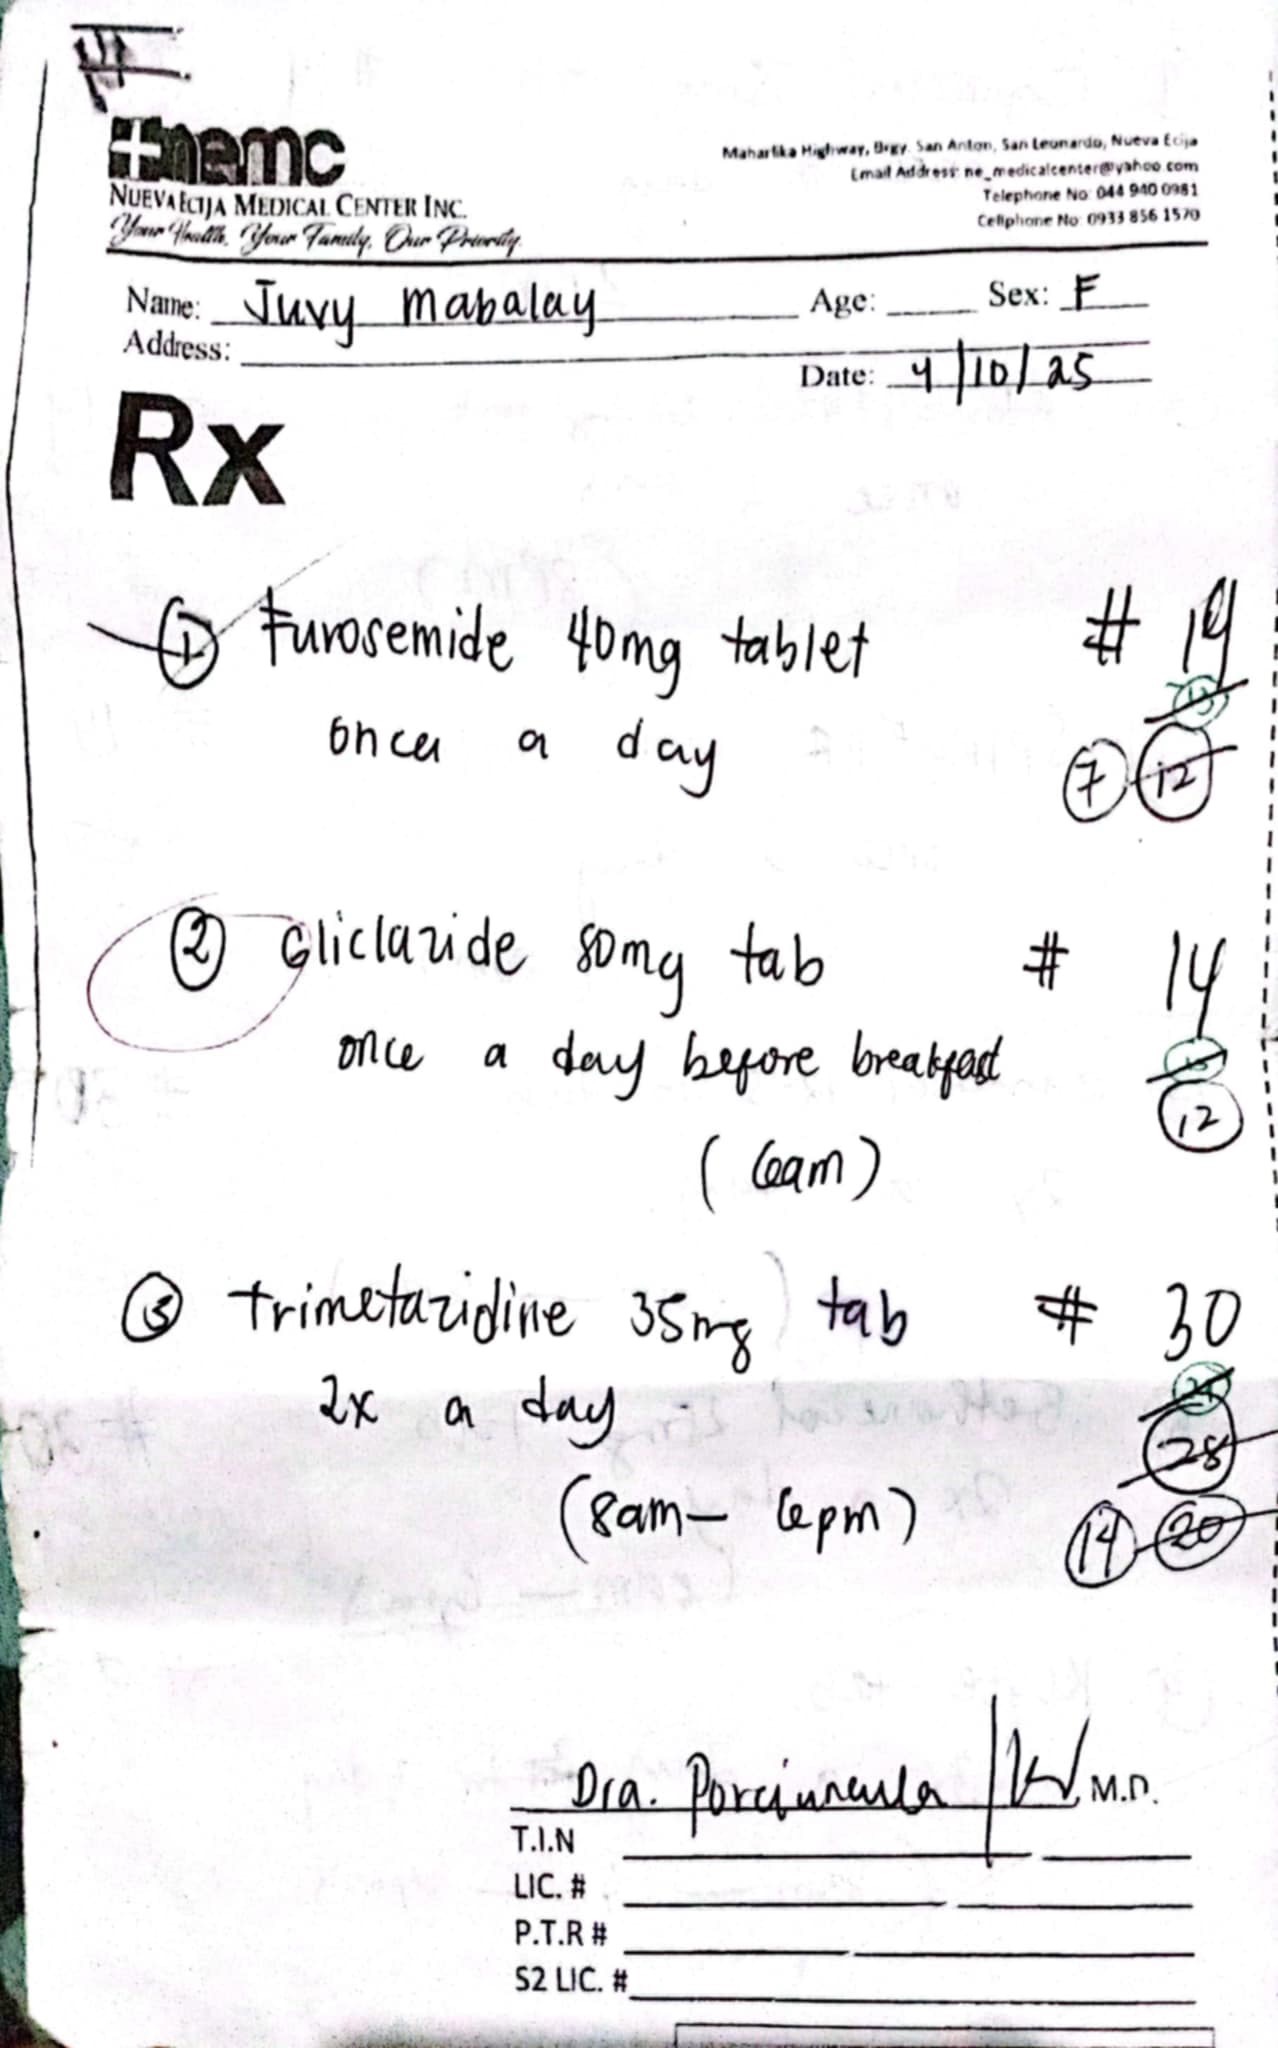 nemc
NUEVA ECIJA MEDICAL CENTER INC.
Your Health, Your Family, Our Priority.
Maharlika Highway, Brgy. San Anton, San Leonardo, Nueva Ecija
Email Address: ne_medicalcenter@yahoo.com
Telephone No: 044 940 0981
Cellphone No: 0933 856 1570
Name: Juvy Mabalay Age: Sex: F
Address:
Date: 4/10/25
Rx
1 Furosemide 40mg tablet # 14
once a day
7 12
2 Gliclazide 80mg tab # 14
once a day before breakfast
12
(6am)
3 Trimetazidine 35mg tab # 30
2x a day
28
(8am - 6pm)
14 20
Dra. Porciuncula M.D.
T.I.N
LIC. #
P.T.R #
S2 LIC. #